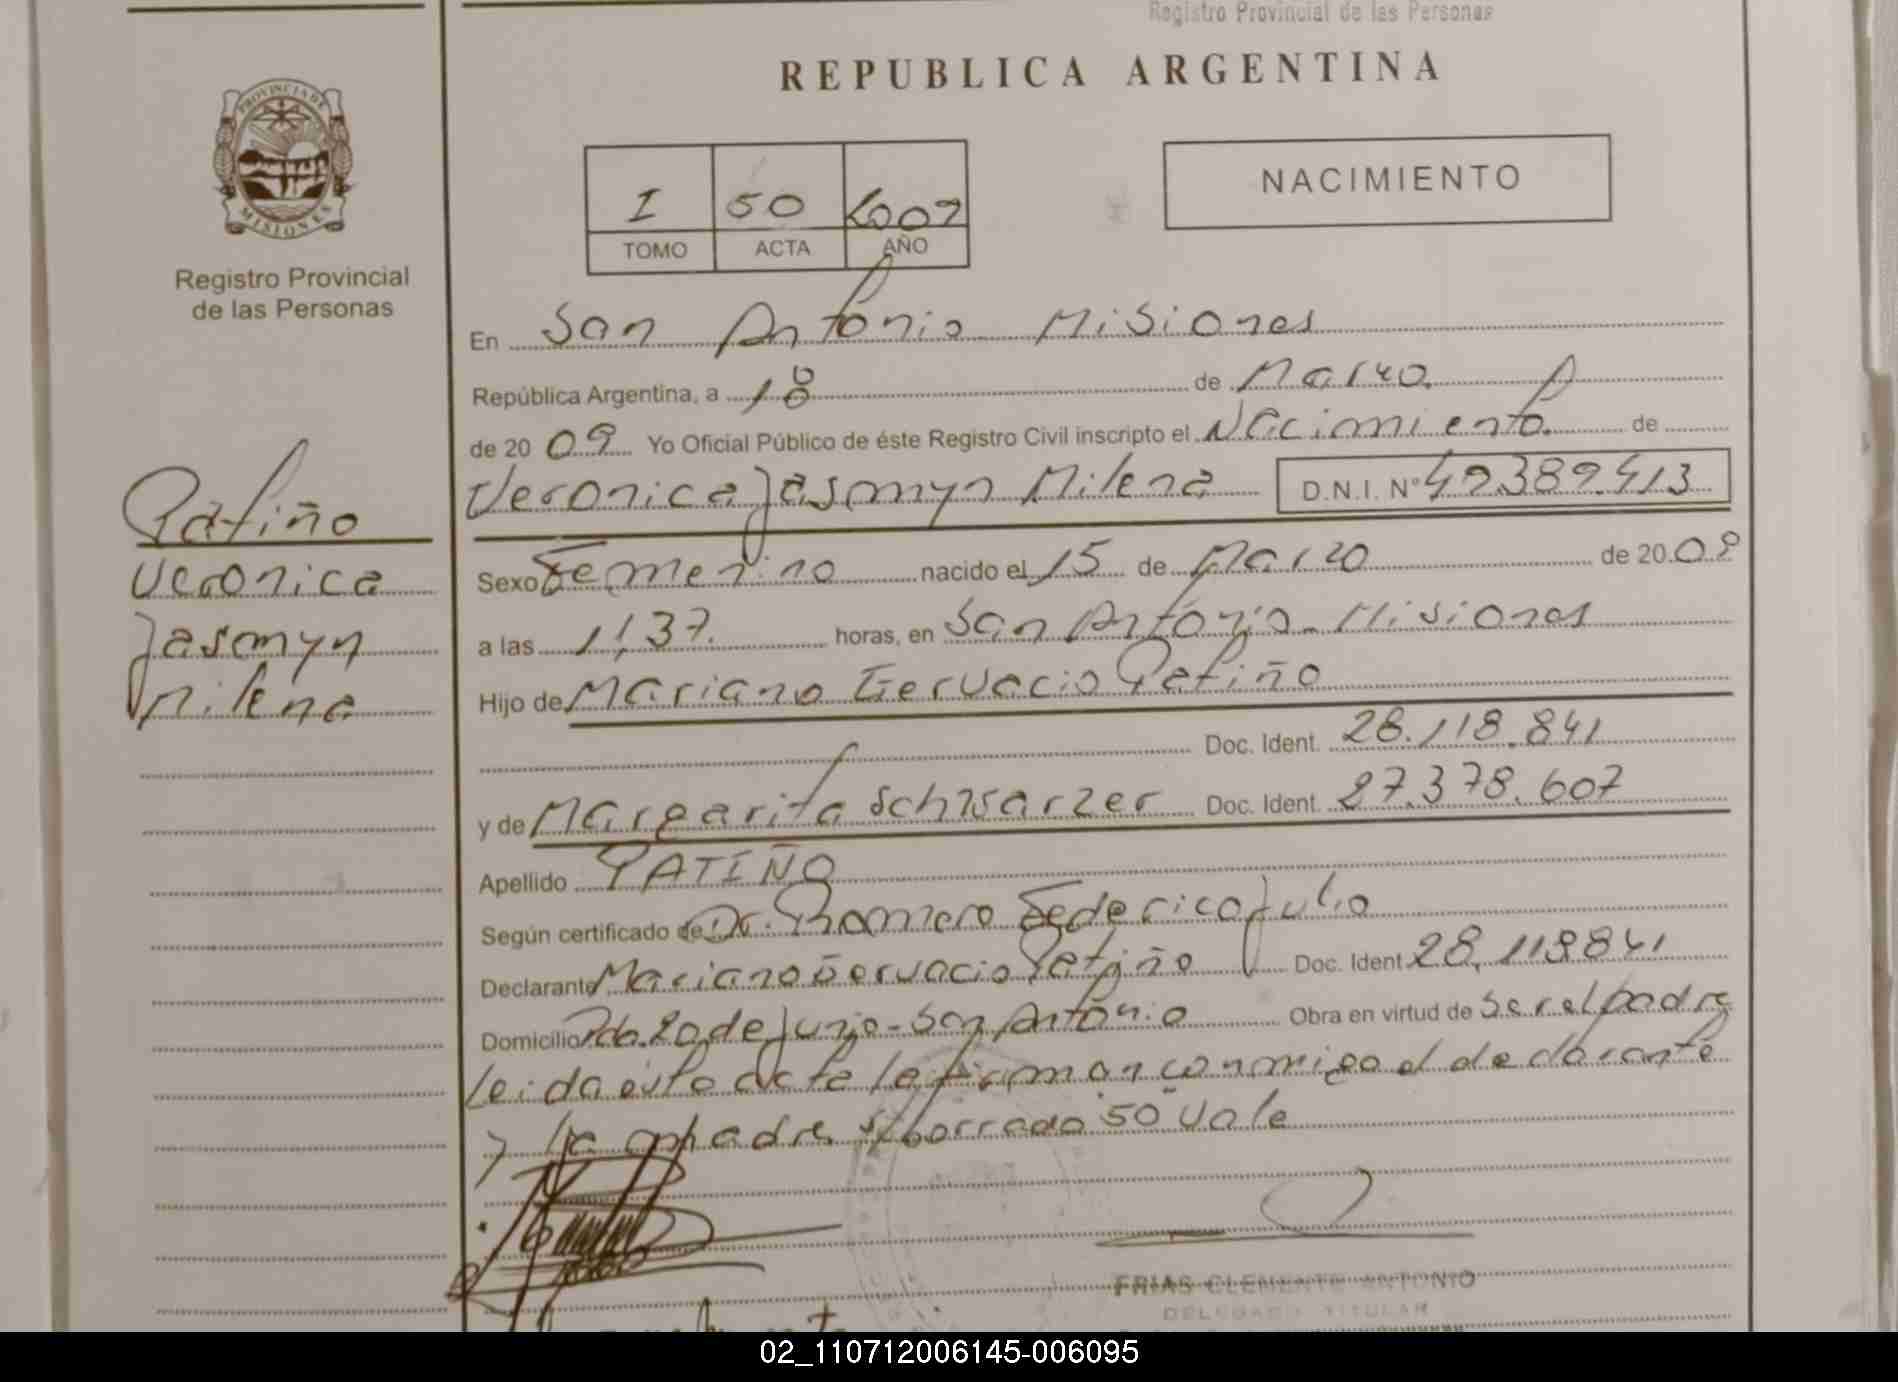 Registro Provincial de las Personas
REPUBLICA ARGENTINA
PROVINCIA DE
MISIONES
Registro Provincial
de las Personas
I 50 2009
TOMO ACTA AÑO
NACIMIENTO
En San Antonio Misiones
República Argentina, a 18 de Marzo
de 20 09 Yo Oficial Público de éste Registro Civil inscripto el Nacimiento de
Veronica Jasmyn Milena D.N.I. Nº 49.389.413
Patiño
Veronica
Jasmyn
Milena
Sexo Femenino nacido el 15 de Marzo de 20 09
a las 11,37. horas, en San Antonio - Misiones
Hijo de Mariano Gervacio Patiño
Doc. Ident. 28.118.841
y de Margarita Schwarzer Doc. Ident. 27.378.607
Apellido PATIÑO
Según certificado de Dr. Romero Federico Julio
Declarante Mariano Gervacio Patiño Doc. Ident 28.118841
Domicilio Pdo. 20 de Junio - San Antonio Obra en virtud de Ser el padre
Leida esta acta la firman conmigo el declarante
y la madre s/borrado "50" Vale
FRIAS CLEMENTE ANTONIO
DELEGADO TITULAR
02_110712006145-006095